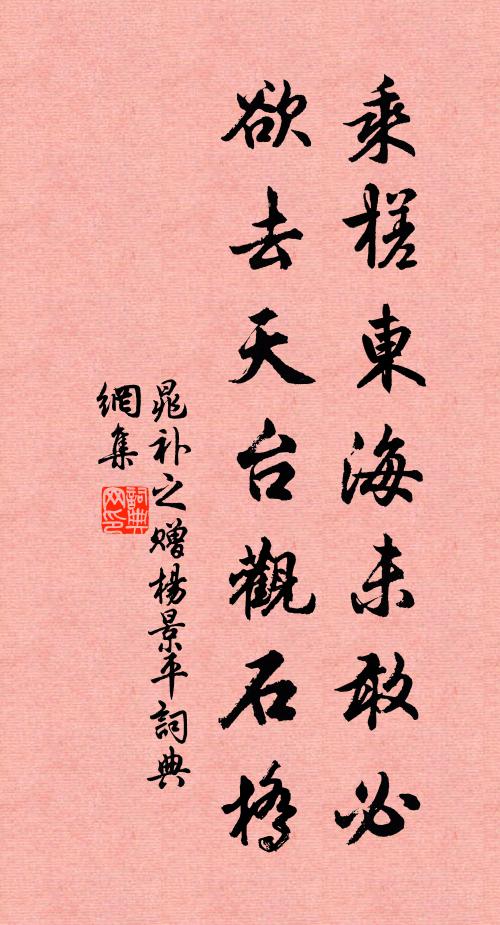 乘槎東海未敢必
欲去天台觀石橋
晁补之赠楊景平詞典
網集
詞典
网印